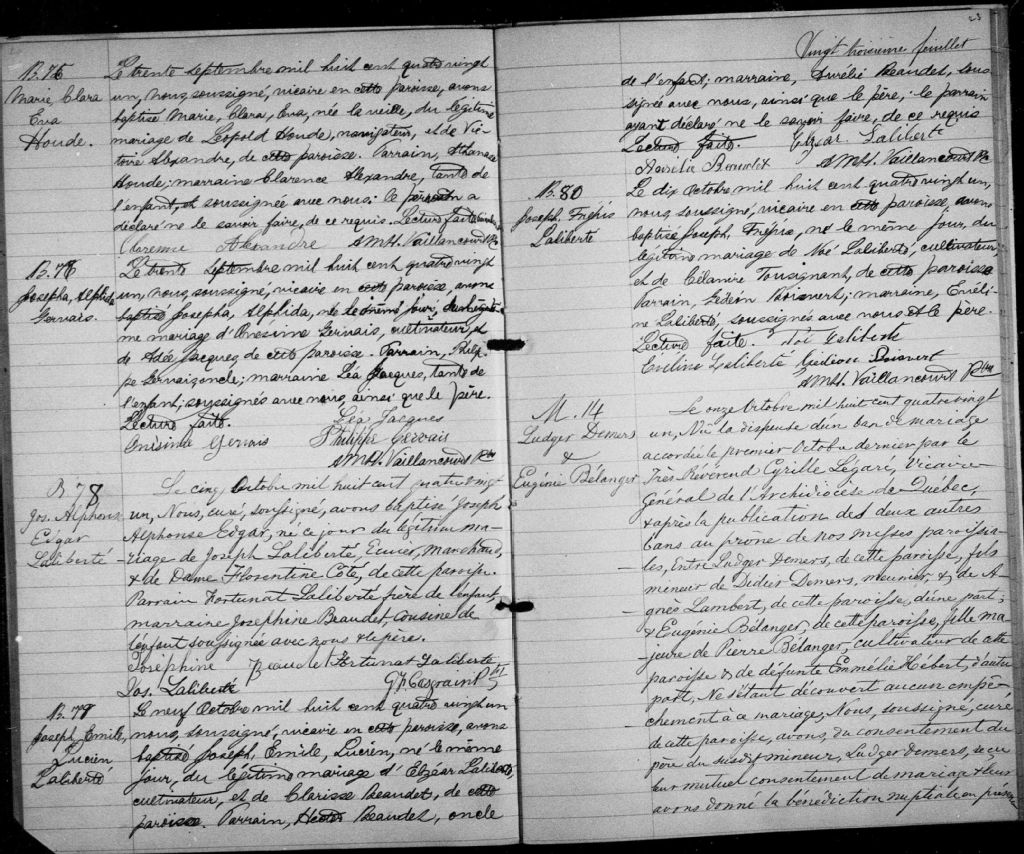 B. 76
Marie, Clara
Eva
Houde.
Le trente septembre mil huit cent quatre vingt
un, nous, soussigné, vicaire en cette paroisse, avons
baptisé Marie, Clara, Eva, née la veille, du légitime
mariage de Léopold Houde, navigateur, et de Vic-
toire Alexandre, de cette paroisse. Parrain, Athanase
Houde; marraine Clarence Alexandre, tante de
l'enfant, et soussignée avec nous: le parrain a
déclaré ne le savoir faire, de ce requis. Lecture faite
Clarence Alexandre A.M.H. Vaillancourt Ptre
Josepha, Alphida
Gervais.
Le trente septembre mil huit cent quatre vingt
un, nous, soussigné, vicaire en cette paroisse, avons
baptisé Josepha, Alphida, née le même jour, du légiti-
me mariage d'Onesime Gervais, cultivateur, et
de Adée Jacques de cette paroisse. Parrain, Philip-
pe Gervais, oncle; marraine Léa Jacques, tante de
l'enfant; soussignés avec nous, ainsi que le père.
Lecture faite. Léa Jacques
Onésime Gervais Philippe Gervais
A.M.H. Vaillancourt Ptre
B. 78
Jos. Alphonse
Edgar
Laliberté
Le cinq Octobre mil huit cent quatre vingt
un, Nous, curé, soussigné, avons baptisé Joseph
Alphonse Edgar, né ce jour du légitime ma-
riage de Joseph Laliberté, Ecuier, Marchand,
& de Dame Florentine Côté, de cette paroisse.
Parrain Fortunat Laliberté frère de l'enfant,
marraine Josephine Beaudet, cousine de
l'enfant soussignée avec nous & le père.
Joséphine Beaudet Fortunat Laliberté
Jos. Laliberté
B. 79
Joseph, Emile,
Lucien
Laliberté
Le neuf Octobre mil huit cent quatre vingt un
nous, soussigné, vicaire en cette paroisse, avons
baptisé Joseph, Emile, Lucien, né le même
jour, du légitime mariage d'Elzéar Laliberté,
cultivateur, et de Clarisse Beaudet, de cette
paroisse. Parrain, Beaudet, oncle
23
Vingt troisième feuillet
de l'enfant; marraine, Aurélie Beaudet, sous-
signée avec nous, ainsi que le père, le parrain
ayant déclaré ne le savoir faire, de ce requis
Lecture faite. Elzear Laliberté
Beaudet A.M.H. Vaillancourt Ptre
B. 80
Joseph
Laliberté
Le dix Octobre mil huit cent quatre vingt un,
nous, soussigné, vicaire en cette paroisse, avons
baptisé Joseph, né le même jour, du
légitime mariage de Noé Laliberté, cultivateur,
et de Célanire Tousignant, de cette paroisse
Parrain, Gédéon Boisvert; marraine, Eméli-
ne Laliberté, soussignés avec nous et le père.
Lecture faite. Noé Laliberté
Laliberté Gédéon Boisvert
A.M.H. Vaillancourt Ptre
M. 14
Ludger Demers
&
Eugénie Bélanger
Le onze Octobre mil huit cent quatre vingt
un, Vu la dispense d'un ban de mariage
accordée le premier Octobre dernier par le
Très Révérend Cyrille Légaré, Vicaire
Général de l'Archidiocèse de Québec,
& après la publication des deux autres
bans au prone de nos messes paroissia-
les, entre Ludger Demers, de cette paroisse, fils
mineur de Didier Demers, meunier, & de A-
gnès Lambert, de cette paroisse, d'une part;
& Eugénie Bélanger, de cette paroisse, fille ma-
jeure de Pierre Bélanger, cultivateur de cette
paroisse & de défunte Emmélie Hébert, d'autre
part, Ne s'étant découvert aucun empê-
chement à ce mariage, Nous, soussigné, curé
de cette paroisse, avons, du consentement du
père du susdit mineur, Ludger Demers, reçu
leur mutuel consentement de mariage & leur
avons donné la bénédiction nuptiale en présence